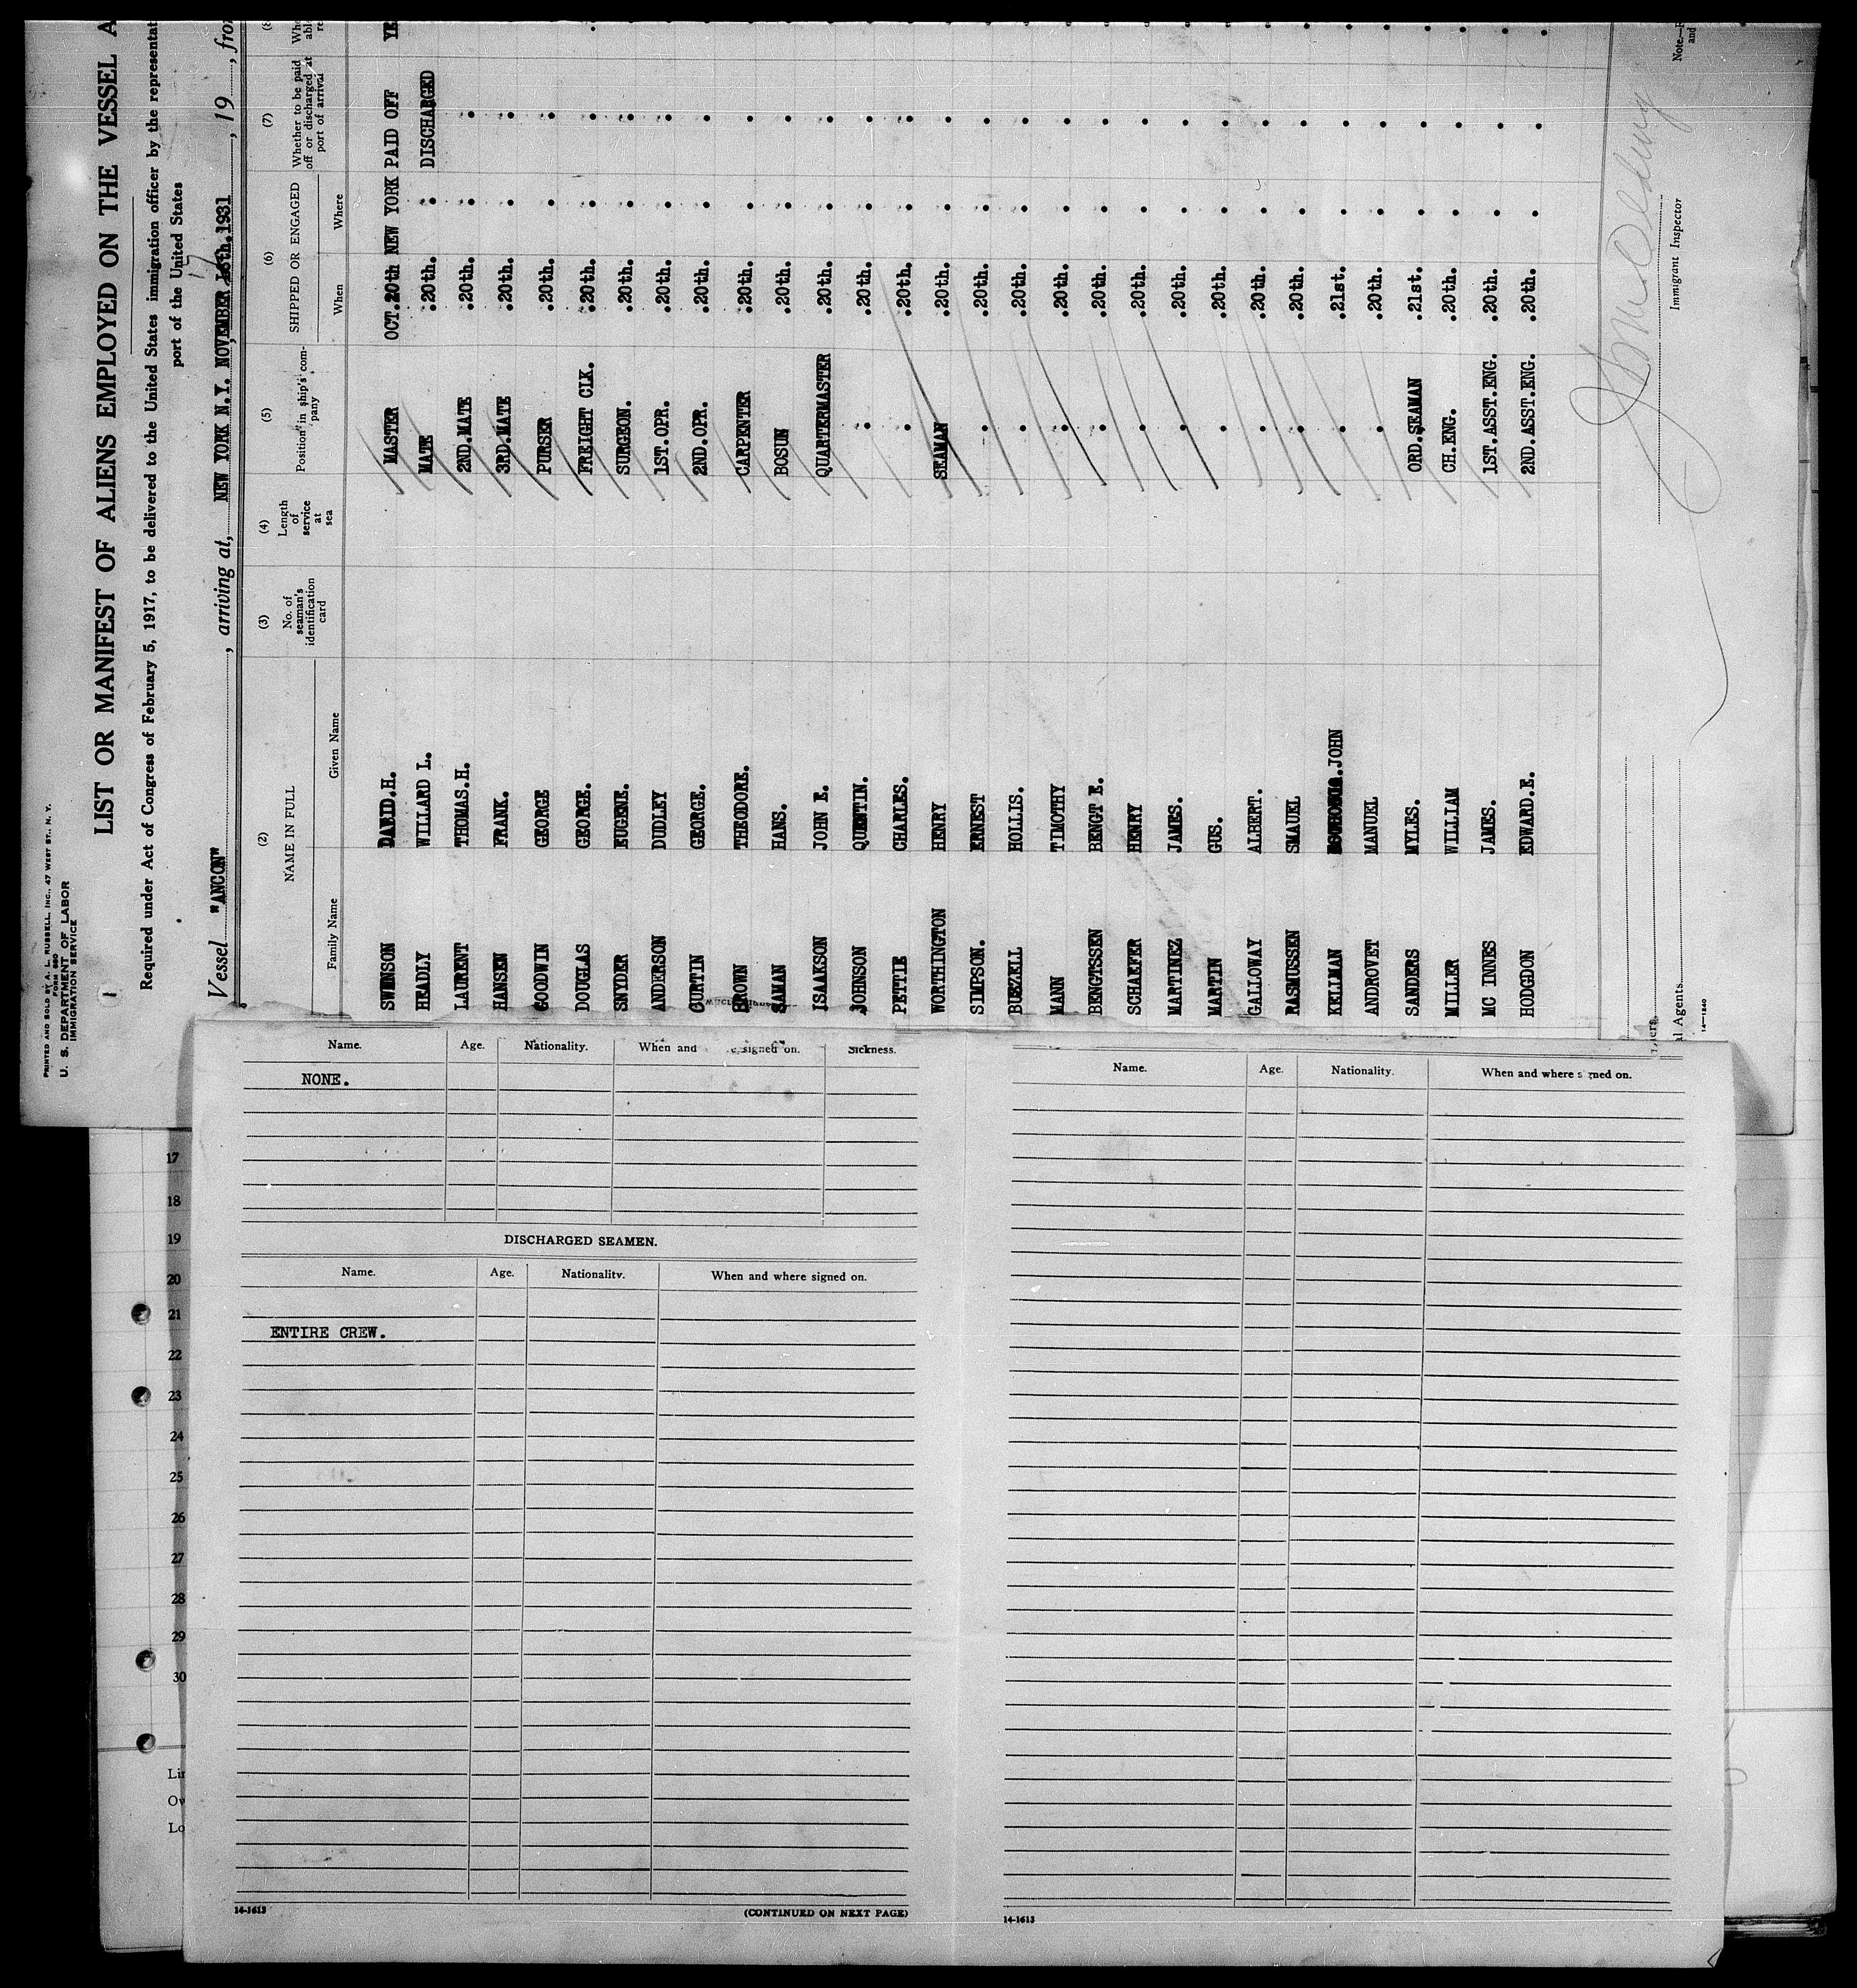 PRINTED AND SOLD BY A. L. RUSSELL, INC., 47 WEST ST., N. Y.
FORM 680
U. S. DEPARTMENT OF LABOR
IMMIGRATION SERVICE
1
LIST OR MANIFEST OF ALIENS EMPLOYED ON THE VESSEL A
Required under Act of Congress of February 5, 1917, to be delivered to the United States immigration officer by the representat
port of the United States
Vessel "ANCON", arriving at, NEW YORK N.Y. NOVEMBER 17 1931, 19, fro
(2) (3) (4) (5) (6) (7)
NAME IN FULL No. of seaman's identification card Length of service at sea Position in ship's company SHIPPED OR ENGAGED Whether to be paid off or discharged at port of arrival
Family Name Given Name When Where
SWINSON DAVID.H. MASTER OCT.20th NEW YORK PAID OFF YE
HEADLY WILLARD L. MATE .20th. DISCHARGED
LAURENT THOMAS.H. 2ND.MATE .20th.
HANSEN FRANK. 3RD.MATE .20th.
GOODWIN GEORGE PURSER .20th.
DOUGLAS GEORGE. FREIGHT CLK. .20th.
SNYDER EUGENE. SURGEON. .20th.
ANDERSON DUDLEY 1ST.OPR. .20th.
CURTIN GEORGE. 2ND.OPR. .20th.
BROWN THEODORE. CARPENTER .20th.
SAMAN HANS. BOSUN .20th.
ISAAKSON JOHN E. QUARTERMASTER .20th.
JOHNSON QUENTIN. .20th.
PETTIE CHARLES. .20th.
WORTHINGTON HENRY SEAMAN .20th.
SIMPSON. ERNEST .20th.
BUEZELL HOLLIS. .20th.
MANN TIMOTHY .20th.
BENGTSSEN BENGT E. .20th.
SCHAEFER HENRY .20th.
MARTINEZ JAMES. .20th.
MARTIN GUS. .20th.
GALLOWAY ALBERT. .20th.
RASMUSSEN SMAUEL .20th.
KELLMAN JOHN .21st.
ANDROVET MANUEL .20th.
SANDERS MYLES. ORD.SEAMAN .21st.
MILLER WILLIAM CH.ENG. .20th.
MC INNES JAMES. 1ST.ASST.ENG. .20th.
HODGDON EDWARD.E. 2ND.ASST.ENG. .20th.
Immigrant Inspector
Note.—
and
al Agents
14—1240
Name. Age. Nationality. When and signed on. Sickness.
NONE.
DISCHARGED SEAMEN.
Name. Age. Nationality. When and where signed on.
ENTIRE CREW.
14-1613
(CONTINUED ON NEXT PAGE)
Name. Age. Nationality. When and where signed on.
14-1613
17
18
19
20
21
22
23
24
25
26
27
28
29
30
Lin
Ow
Lo